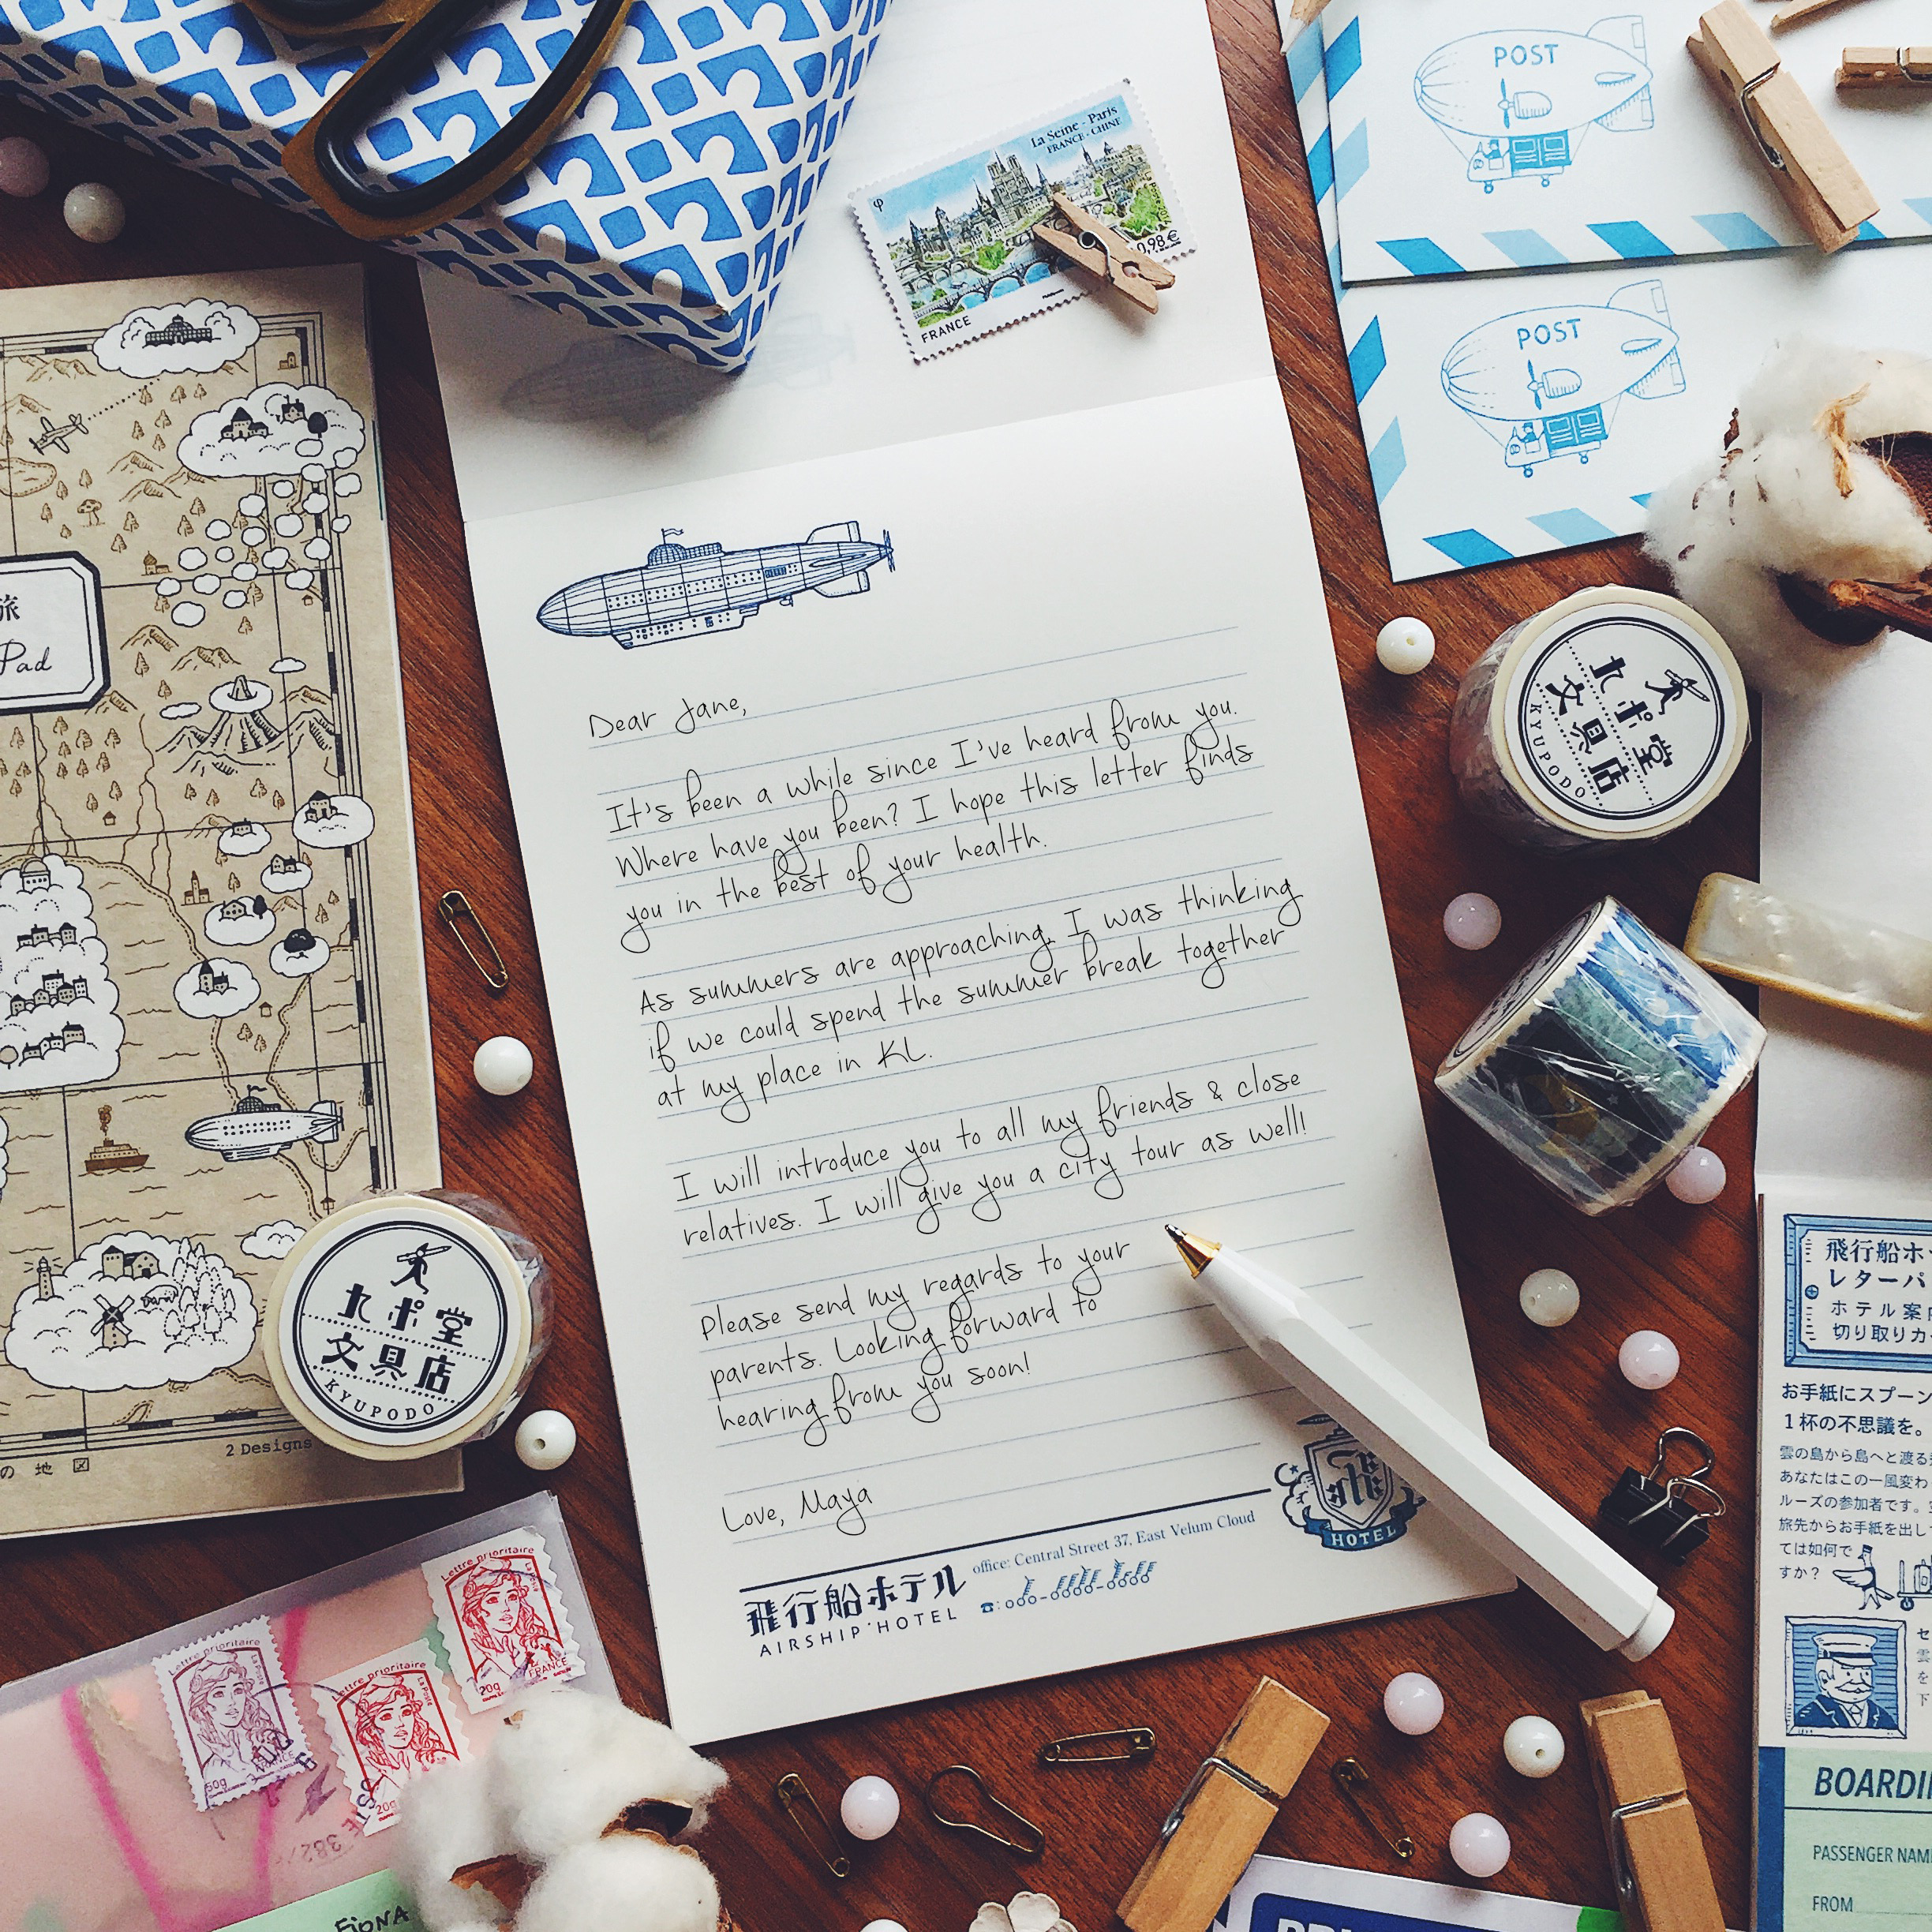 La Seine - Paris
FRANCE - CHINE
0,98 €
FRANCE
POST
POST
旅
Pad
Dear Jane,
It's been a while since I've heard from you.
Where have you been? I hope this letter finds
you in the best of your health.
As summers are approaching, I was thinking
if we could spend the summer break together
at my place in KL.
I will introduce you to all my friends & close
relatives. I will give you a city tour as well!
Please send my regards to your
parents. Looking forward to
hearing from you soon!
Love, Maya
飛行船ホテル
AIRSHIP HOTEL
office: Central Street 37, East Velum Cloud
☎:000-0000-0000
HOTEL
九ポ堂
文具店
KYUPODO
九ポ堂
文具店
KYUPODO
2 Designs
の地図
Lettre prioritaire
La Poste
50g
FRANCE
Lettre prioritaire
La Poste
20g
Lettre prioritaire
La Poste
20g
FRANCE
FiONA
飛行船ホ
レターパ
ホテル案
切り取りカ
お手紙にスプーン
1杯の不思議を。
雲の島から島へと渡る
あなたはこの一風変わ
ルーズの参加者です。
旅先からお手紙を出し
ては如何で
すか?
セ
雲
を
下
BOARDI
PASSENGER NAM
FROM